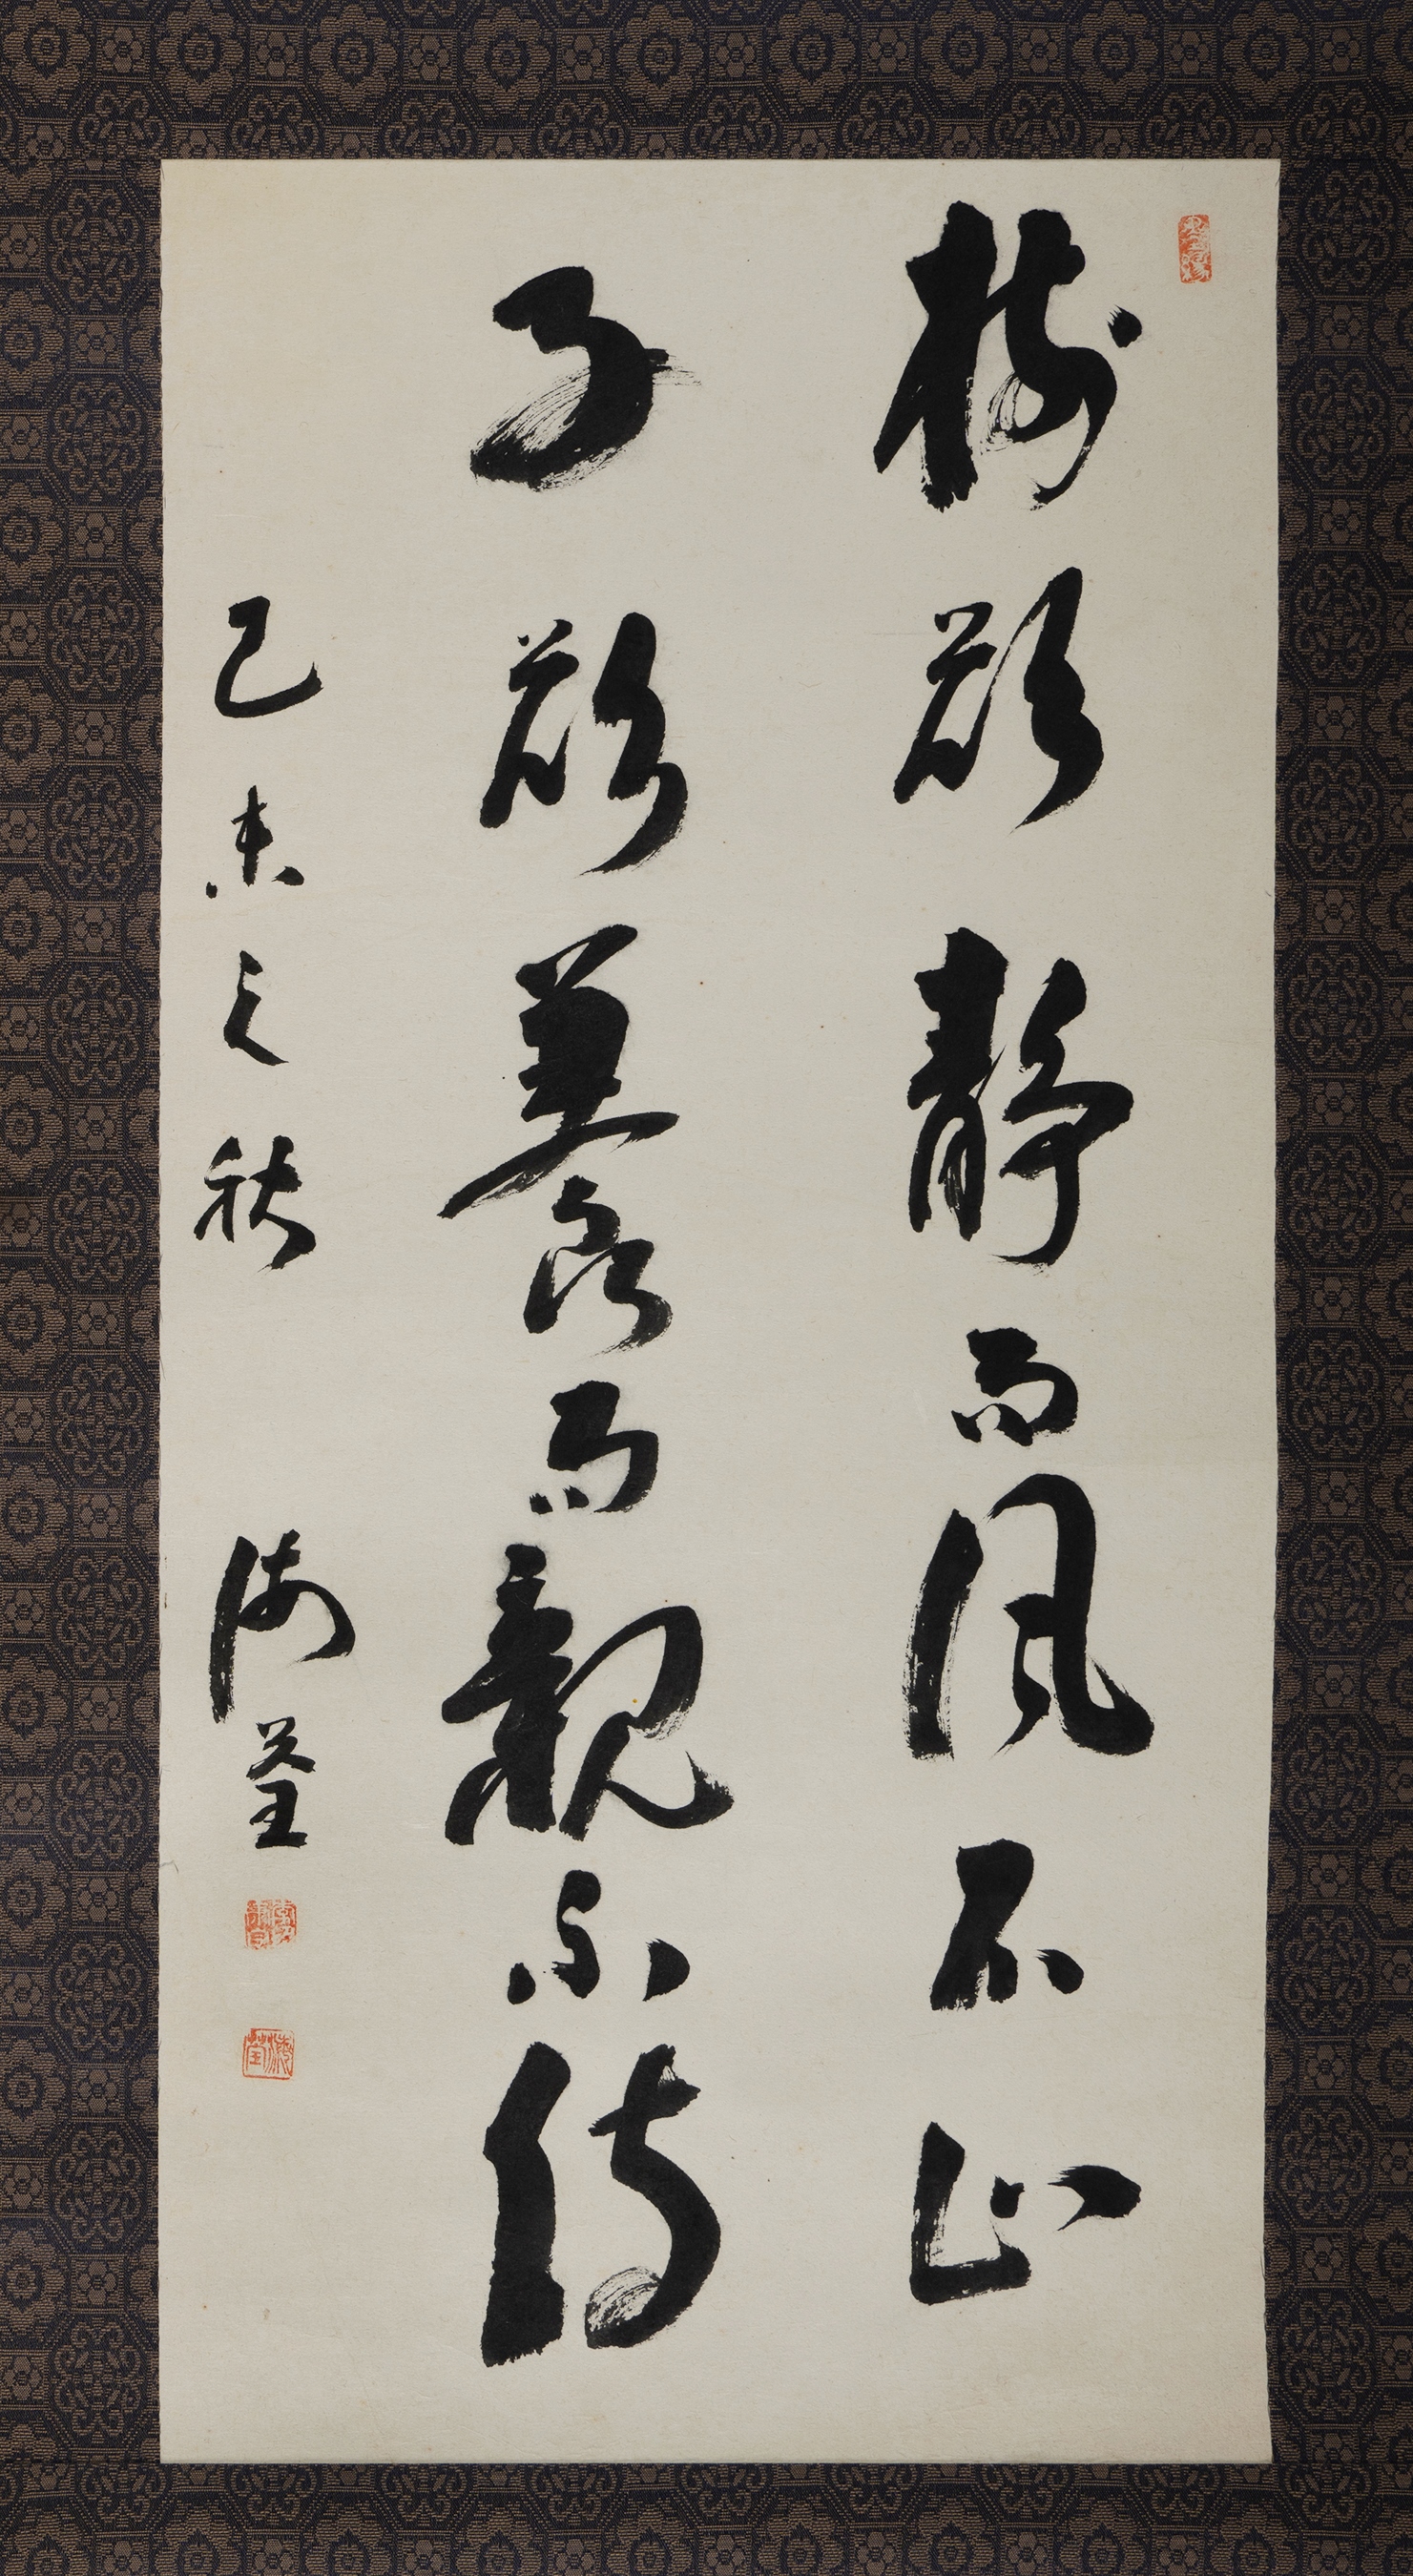 樹欲靜而風不止
子欲養而親不待
己未之秋 海荃